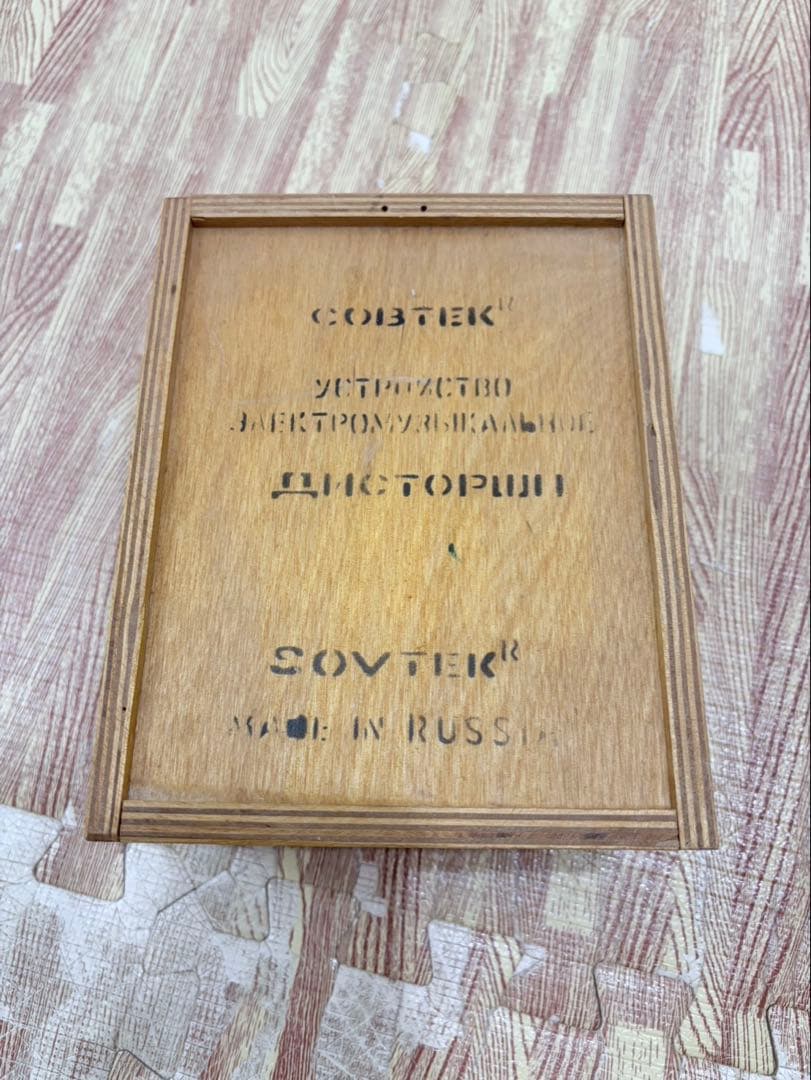 СОВТЕК R
УСТРОЙСТВО
ЭЛЕКТРОМУЗЫКАЛЬНОЕ
ДИСТОРШН
SOVTEK R
MADE IN RUSSIA